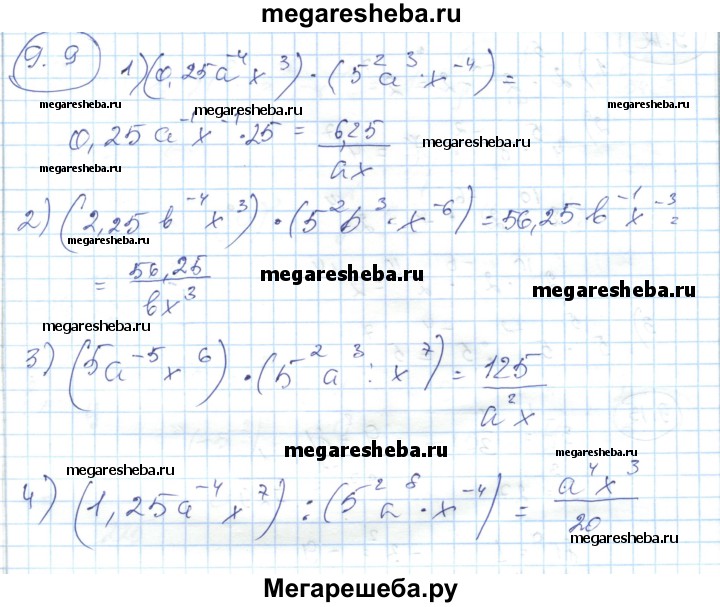 megaresheba.ru
9.9 1) (0,25a⁻⁴x³) · (5²a³·x⁻⁴) =
megaresheba.ru megaresheba.ru megaresheba.ru
0,25a⁻¹x⁻¹·25 = 6,25/ax megaresheba.ru
2) (2,25b⁻⁴x³) · (5²b³·x⁻⁶) = 56,25b⁻¹x⁻³ =
megaresheba.ru
= 56,25/bx³ megaresheba.ru megaresheba.ru
megaresheba.ru
3) (5a⁻⁵x⁶) · (5²a³ : x⁷) = 125/a²x
megaresheba.ru megaresheba.ru
megaresheba.ru
4) (1,25a⁻⁴x⁷) : (5²a⁸·x⁻⁴) = a⁴x³/20
megaresheba.ru
Мегарешеба.ру